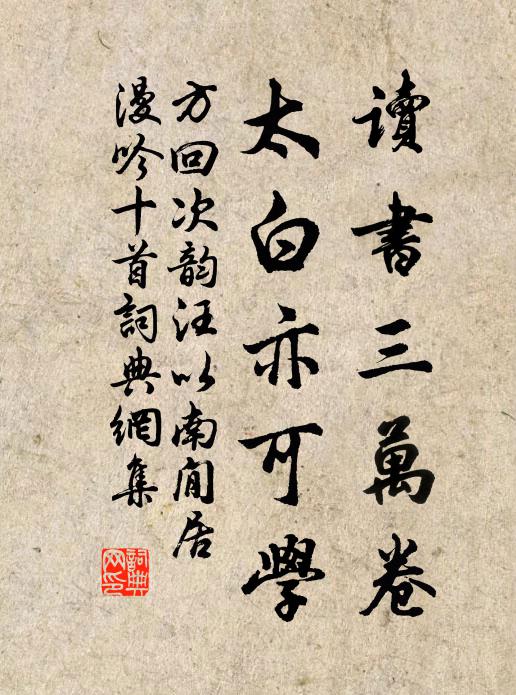 讀書三萬卷
太白亦可學
方回次韵汪以南閒居
漫吟十首詞典網集
詞典網印